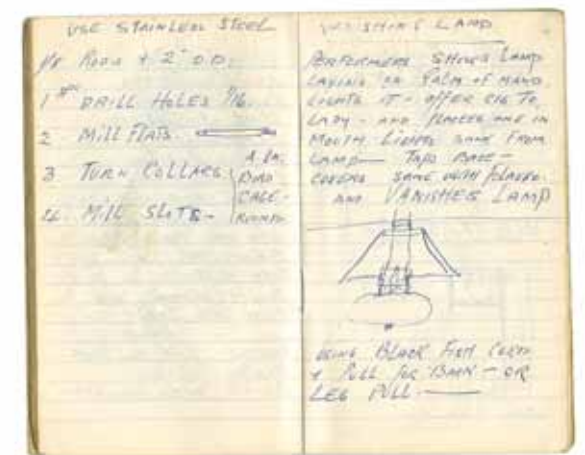 USE STAINLESS STEEL
1/8 RODS + 2" O.D.
1 DRILL HOLES 1/16
2 MILL FLATS
3 TURN COLLARS
A LA
BIRD
CAGE -
4 MILL SLOTS -
VANISHING LAMP
PERFORMERS SHOWS LAMP
LAYING ON PALM OF HAND
LIGHTS IT - OFFER CIG TO
LADY - AND PLACES ONE IN
MOUTH LIGHTS SAME FROM
LAMP - TAPS BASE -
COVERS SAME WITH
AND VANISHES LAMP
USING BLACK FISH CORD
+ PULL FOR BACK - OR
LEG PULL -